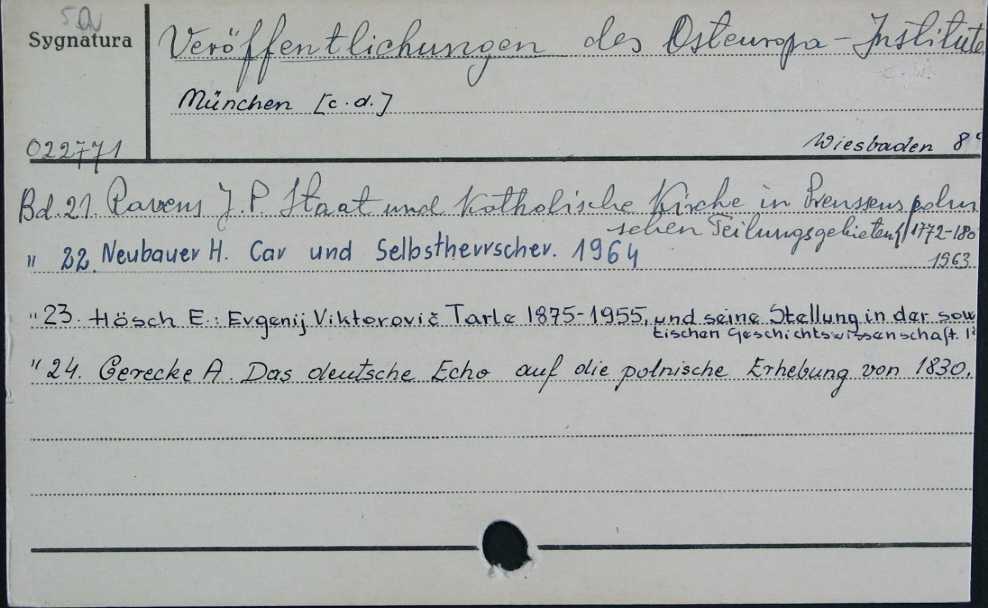 5a
Sygnatura
Veröffentlichungen des Osteuropa-Institute
München [c.d.]
022771
Wiesbaden 8°
Bd. 21. Ravens J.P. Staat und katholische Kirche in Preussens poln
schen Teilungsgebieten 1772-180
1963
" 22. Neubauer H. Car und Selbstherrscher. 1964
" 23. Hösch E.: Evgenij Viktorovič Tarle 1875-1955, und seine Stellung in der sow
tischen Geschichtswissenschaft. 1
" 24. Gerecke A. Das deutsche Echo auf die polnische Erhebung von 1830.